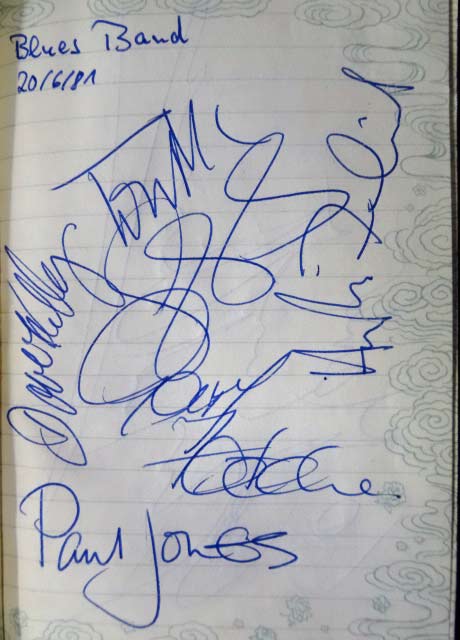 Blues Band
20/6/81
Tom M
Dave Kelly
Gary
Fletcher
Paul Jones